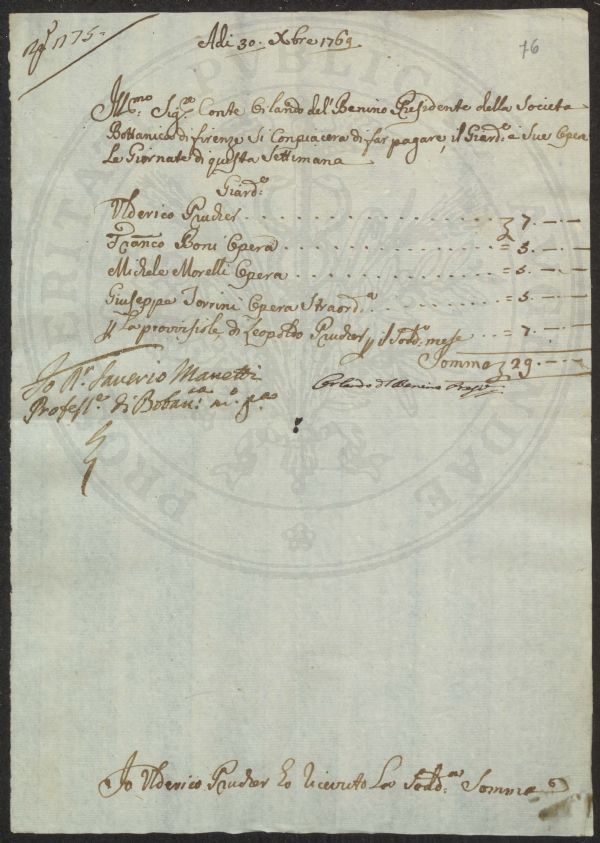 N.º 175.
76
Adi 30. Xbre 1769
Ill:mo Sig:re Conte Orlando del Benino Presidente della Societa
Bottanica di Firenze Si Conpiacera di far pagare il Giard:e e Sue Opera
Le Giornate di questa Settimana
Giard:e
Ulderico Prucker 7. — —
Franco Boni Opera = 5. — —
Michele Morelli Opera = 5. — —
Giuseppe Torrini Opera Straord:a = 5. — —
La provisiole, di Leopoldo Prucker il Sodd:o mese = 7. — —
Somma 29. — —
Io D:r Saverio Manetti
Orlando del Benino Presid:e
Profess:e di Botan:ca m:o p:o
Io Ulderico Prucker Ho ricevuto La Sodd:a Somma
PRO PUBLICA